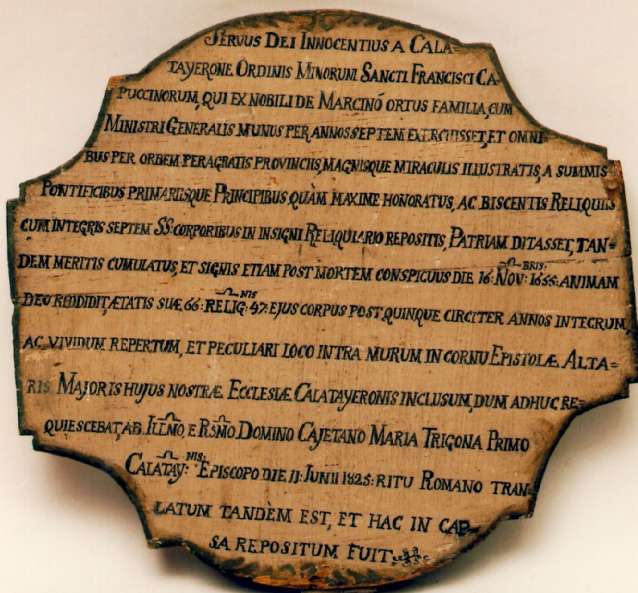 SERVUS DEI INNOCENTIUS A CALA=
TAYERONE ORDINIS MINORUM SANCTI FRANCISCI CA-
PUCCINORUM, QUI EX NOBILI DE MARCINÓ ORTUS FAMILIA, CUM
MINISTRI GENERALIS MUNUS PER ANNOS SEPTEM EXERCUISSET, ET OMNI-
BUS PER ORBEM PERAGRATIS PROVINCIIS, MAGNISQUE MIRACULIS ILLUSTRATIS, A SUMMIS
PONTIFICIBUS PRIMARIISQUE PRINCIPIBUS QUÀM MAXIME HONORATUS, AC BISCENTIS RELIQUIIS
CUM INTEGRIS SEPTEM SS: CORPORIBUS IN INSIGNI RELIQUIARIO REPOSITIS, PATRIAM DITASSET, TAN=
DEM MERITIS CUMULATUS, ET SIGNIS ETIAM POST MORTEM CONSPICUUS DIE 16: NOV:BRIS: 1655: ANIMAM
DEO REDDIDIT, ÆTATIS SUÆ 66: RELIG:NIS 47: EJUS CORPUS POST QUINQUE CIRCITER ANNOS INTEGRUM,
AC VIVIDUM REPERTUM, ET PECULIARI LOCO INTRA MURUM IN CORNU EPISTOLÆ ALTA=
RIS MAJORIS HUJUS NOSTRÆ ECCLESIÆ CALATAYERONIS INCLUSUM, DUM ADHUC RE=
QUIESCEBAT, AB ILLMO, E RSMO DOMINO CAJETANO MARIA TRIGONA PRIMO
CALATAY:NIS: EPISCOPO DIE 11: JUNII 1825: RITU ROMANO TRAN=
LATUM TANDÈM EST, ET HAC IN CAP=
SA REPOSITUM FUIT.